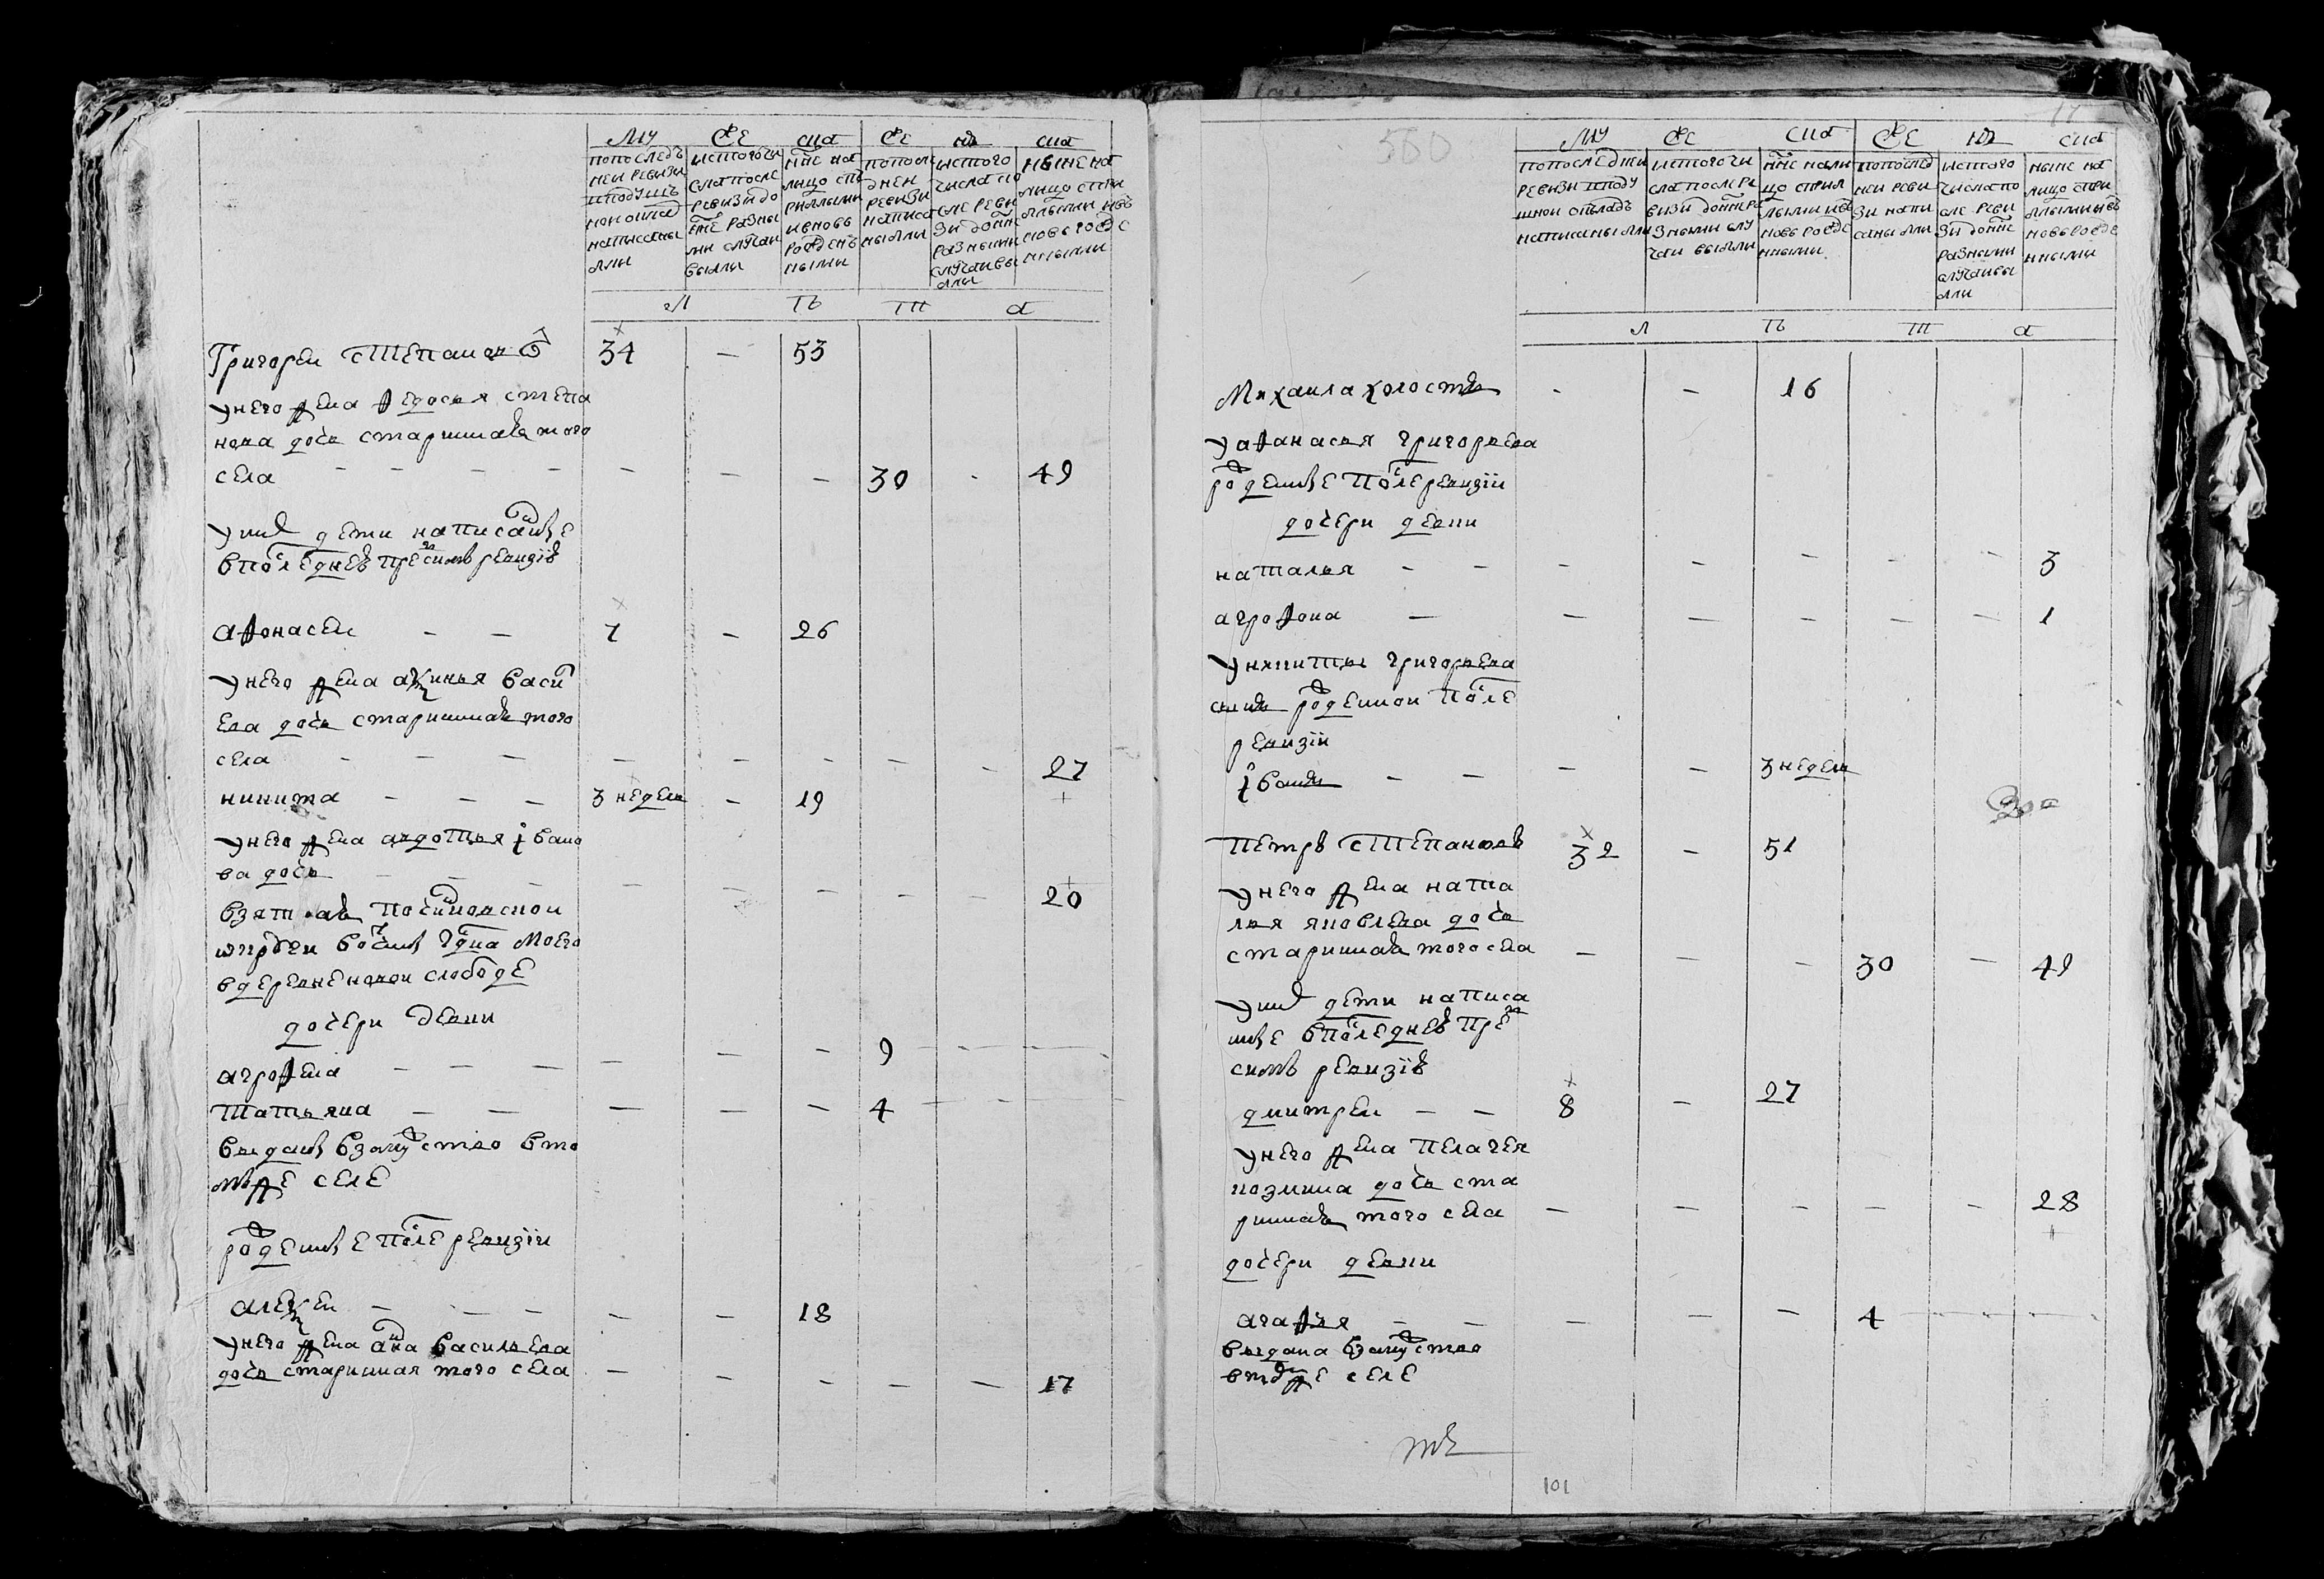 Му Же ска Же нь ска
попоследъ
ней ревизи
пподушъ
ной оклад
написаны
ли
ис того чи
сла после
ревизи до
ныне разны
ми случаи
были
ныне на
лицо спри
былыми
и вновь
рожденъ
ными
попосле
дней
ревизи
написа
ны или
ис того
числа по
сле реви
зи доны
разными
случаи вы
или
ныне на
лицо спри
былыми и въ
новь рожде
нными
Л ѣ т а
Григореи степановъ 34 — 53
у него жена федосья степа
нова дочь старинная того
села — — — — — — — 30 - 49
у них дети написанные
в последнеи пред сим ревизии
афонасеи — — 7 — 26
у него жена аксинья васил
ева дочь старинная того
села — — — — — — — — 27
никита — — — 3 недел — 19
у него жена авдотья ивано
ва дочь — — — — — — — — 20
взятая
вотчины гдна моего
в деревне новои слободе
дочери девки
агрофена — — — — — — 9
татьяна — — — — — 4
выданы в замужство в то
мъже селе
рожденные после ревизии
алексеи — — — — — 18
у него жена анна васильева
дочь старинная того села — — — — — 17
560
Му Же ска Же нь ска
попоследнеи
ревизи пподу
шнои окладъ
написаны или
ис того чи
сла после ре
визи доныне ра
зными слу
чаи выли
ныне нали
цо спри
лыми ив
новь рожде
нными
попослед
неи реви
зи напи
саны или
ис того
числа по
сле реви
зи доны
разными
случаи вы
или
ныне на
лицо спри
лыми ив
новь рожде
нными
Л ѣ т а
Михаила холостъ - — 16
у афанасья григорьева
рожденные после ревизии
дочери девки
наталья — — — — — — — 3
агрофона — — — — — — 1
у никиты григорьева
сынъ рожденнои после
ревизии
иванъ — — — — 3 недели
петръ степановъ 32 — 51
у него жена ната
лья яковлева дочь
старинная того села — — — 30 — 49
у них дети написа
нные в последнеи пред
сим ревизии
дмитреи — — 8 — 27
у него жена пелагея
козмина дочь ста
ринная того села — — — — — 28
дочери девки
агафья — — — — — 4
выдана в замужство
в томже селе
101